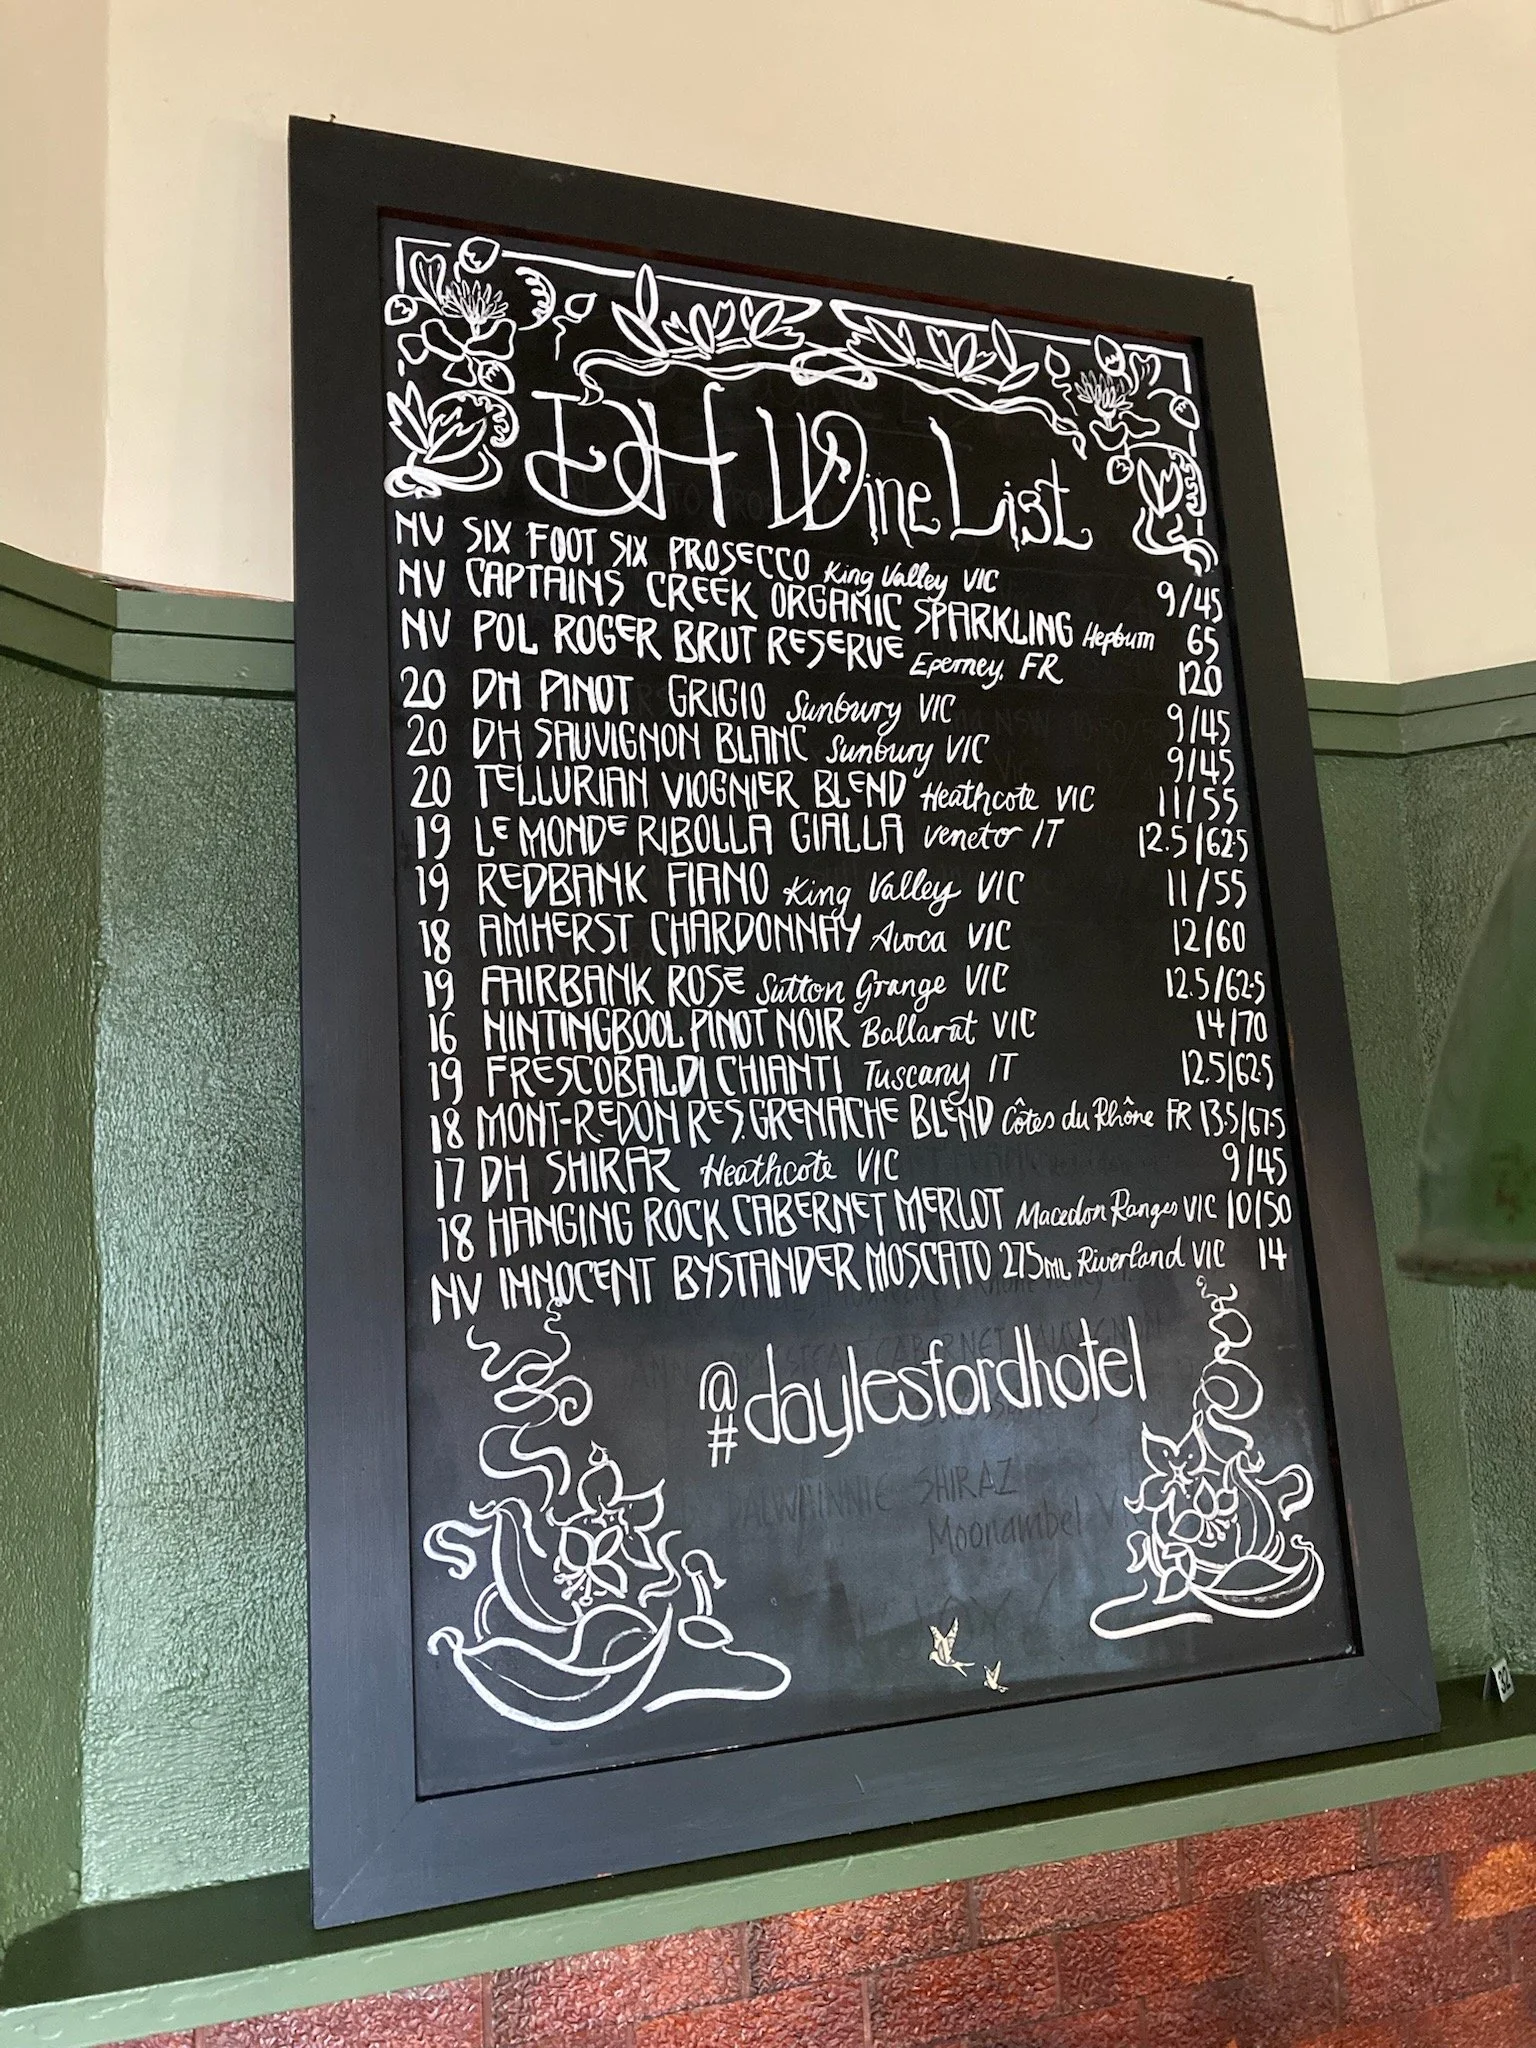 DH Wine List
NV SIX FOOT SIX PROSECCO King Valley VIC 9/45
NV CAPTAINS CREEK ORGANIC SPARKLING Hepburn 65
NV POL ROGER BRUT RESERVE Eperney, FR 120
20 DH PINOT GRIGIO Sunbury VIC 9/45
20 DH SAUVIGNON BLANC Sunbury VIC 9/45
20 TELLURIAN VIOGNIER BLEND Heathcote VIC 11/55
19 LE MONDE RIBOLLA GIALLA Veneto IT 12.5/62.5
19 REDBANK FIANO King Valley VIC 11/55
18 AMHERST CHARDONNAY Avoca VIC 12/60
19 FAIRBANK ROSE Sutton Grange VIC 12.5/62.5
16 NINTINGBOOL PINOT NOIR Ballarat VIC 14/70
19 FRESCOBALDI CHIANTI Tuscany IT 12.5/62.5
18 MONT-REDON RES. GRENACHE BLEND Côtes du Rhône FR 13.5/67.5
17 DH SHIRAZ Heathcote VIC 9/45
18 HANGING ROCK CABERNET MERLOT Macedon Ranges VIC 10/50
NV INNOCENT BYSTANDER MOSCATO 275ML Riverland VIC 14
@
# daylesfordhotel
DALWHINNIE SHIRAZ
Moonambel
32